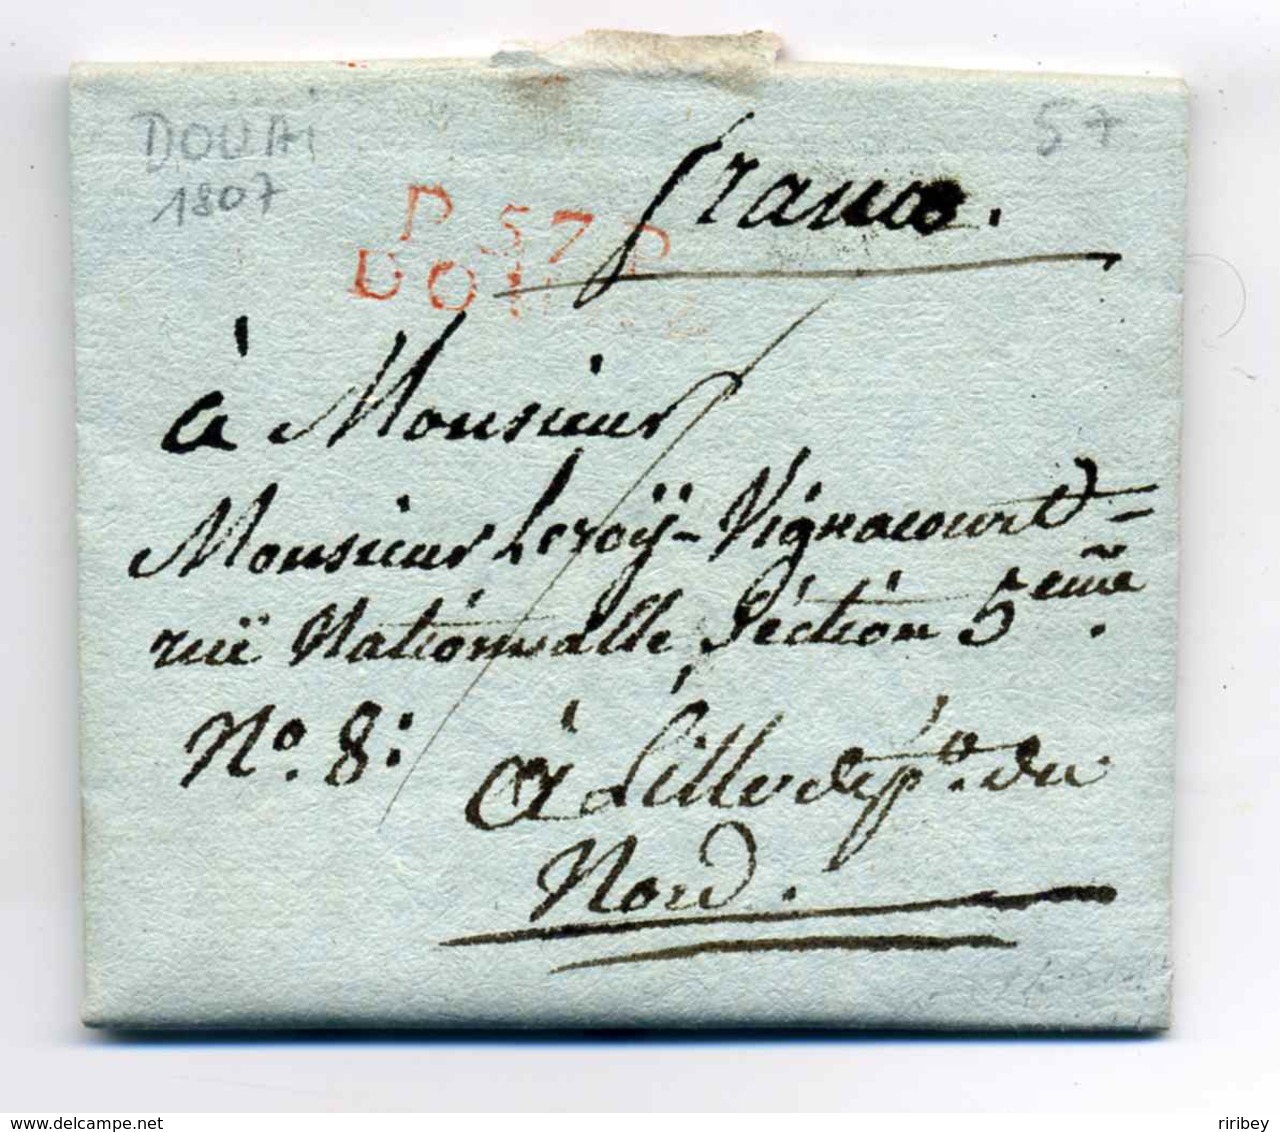 DOUAI
1807
57
franco.
P 57 P
DOU
à Monsieur
Monsieur Leroÿ-Vignacourt=
ruë Nationnalle, Séction 5eme.
No. 8:
à Lille dépt. du
Nord.
www.delcampe.net
riribey